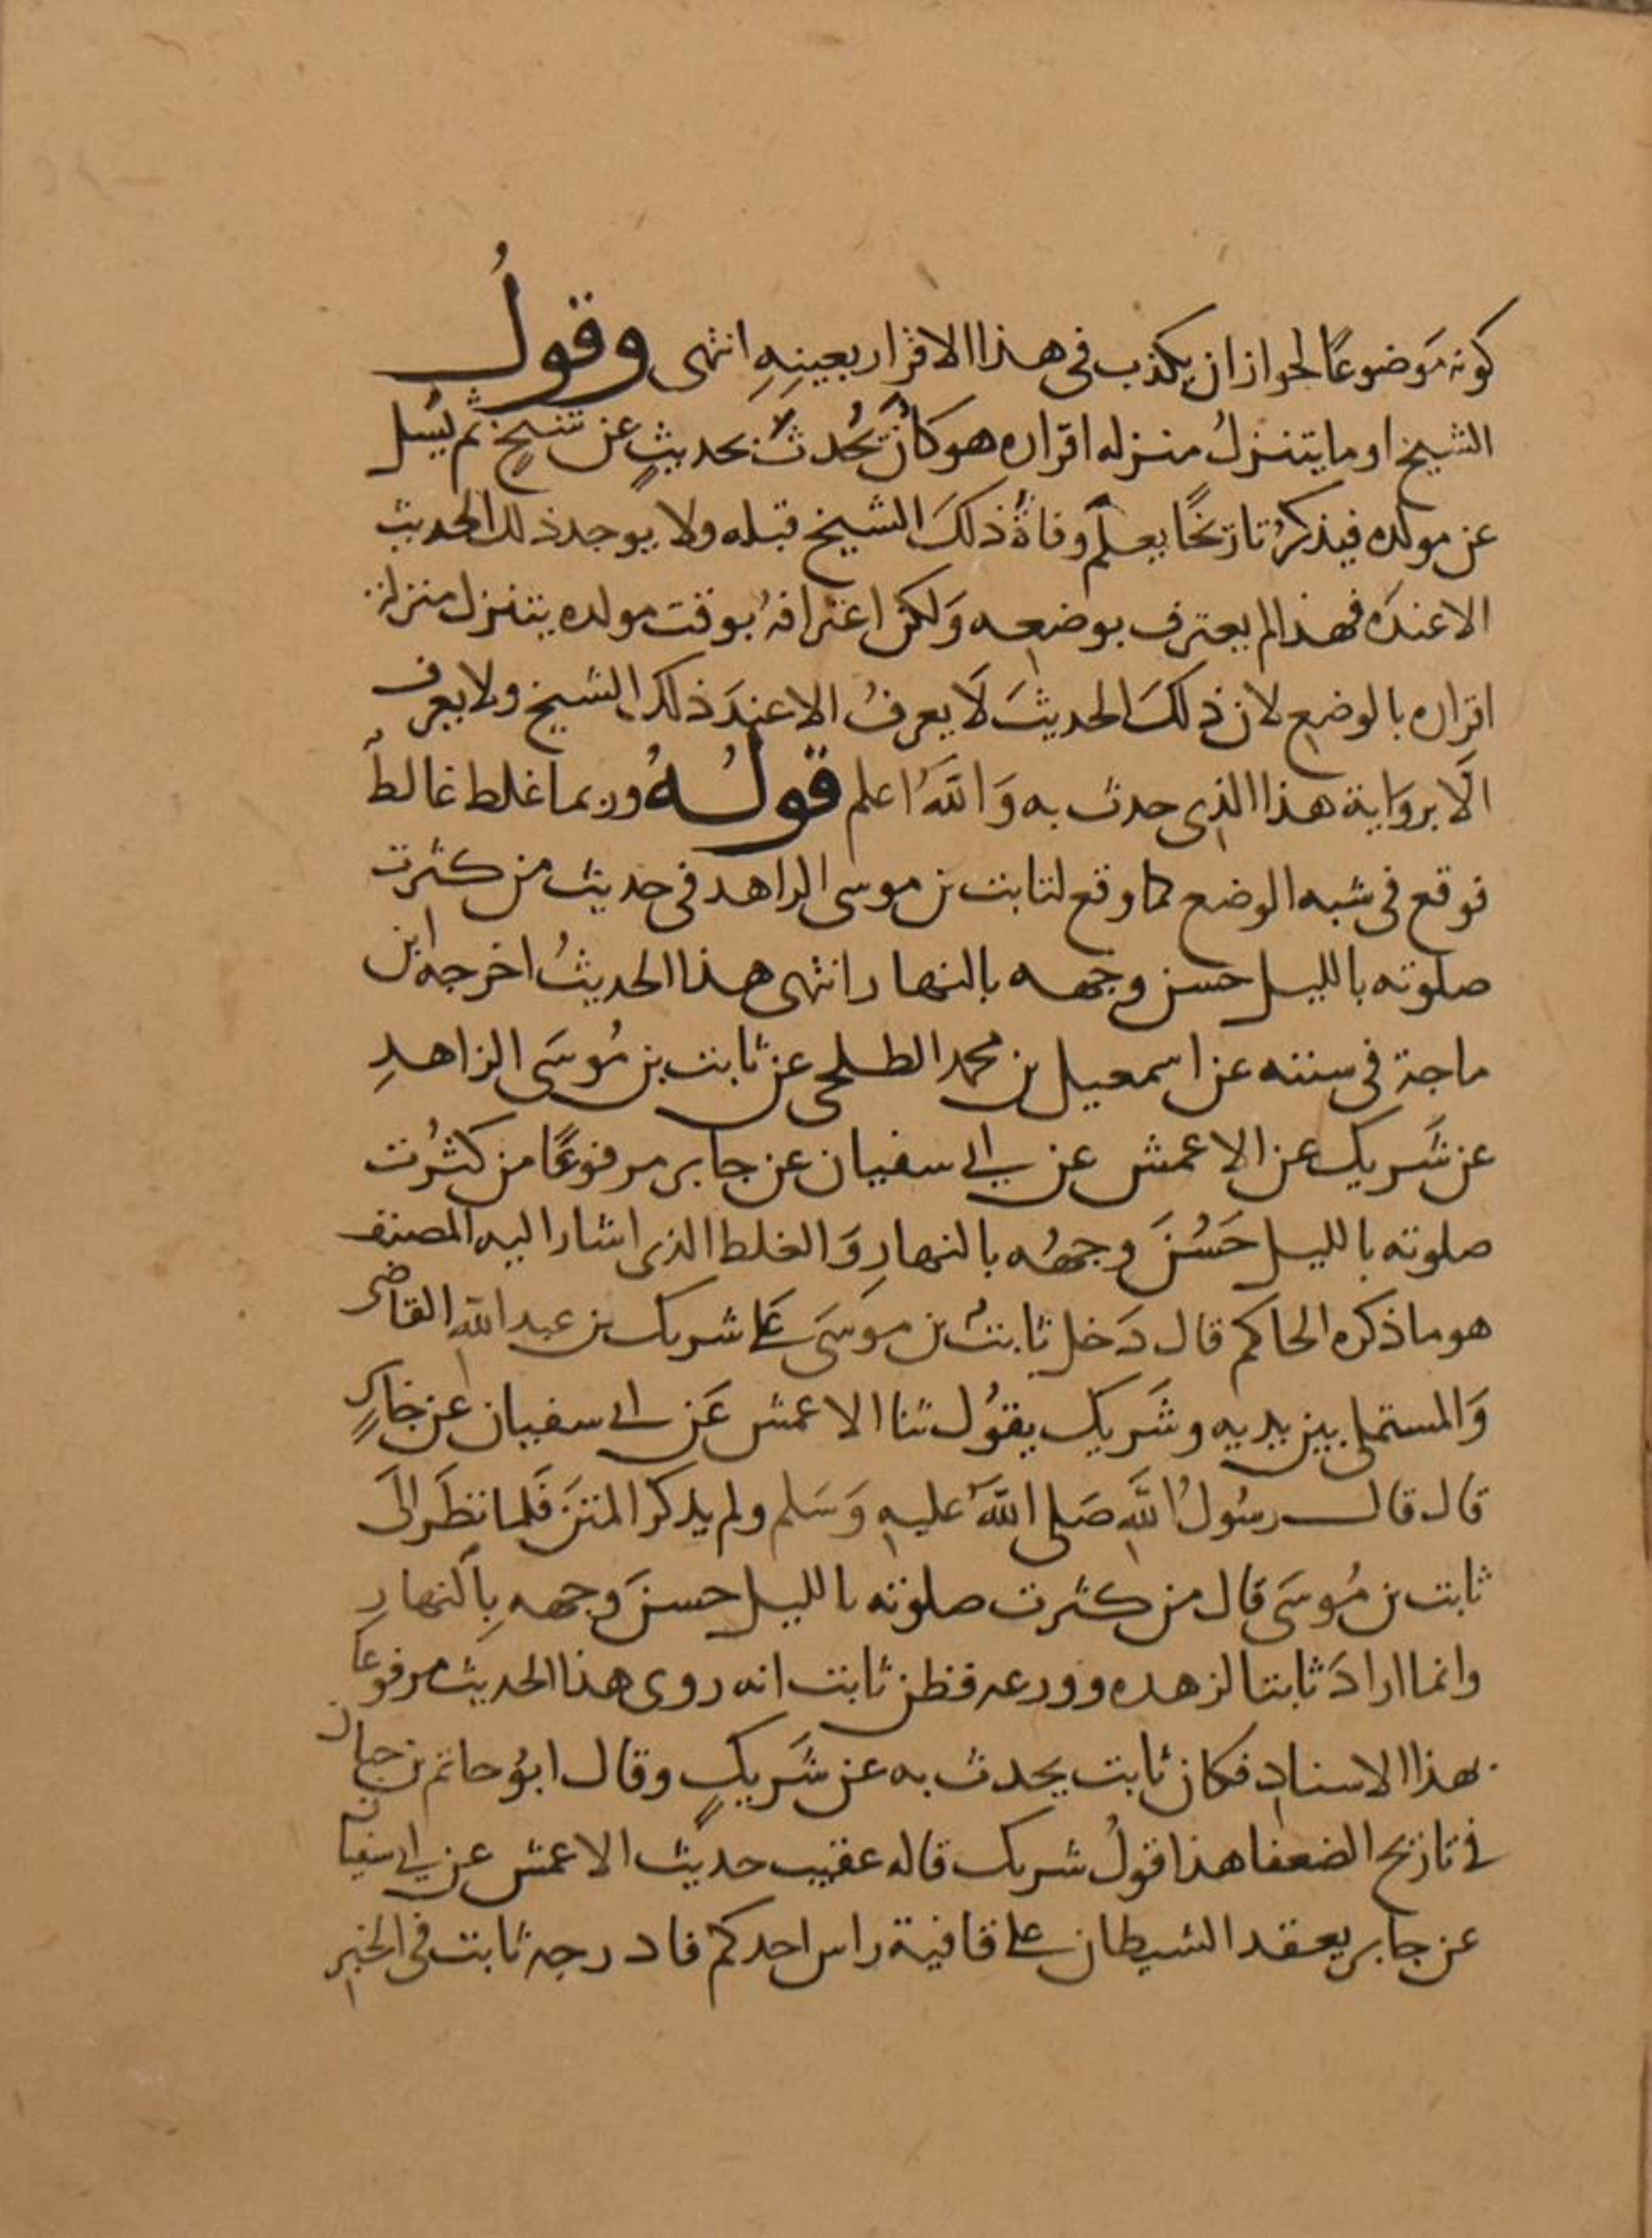 كونه مَوضوعًا لجواز ان يكذب فى هذا الاقرار بعينِهِ انتهى وقولُ
الشيخ او ما يتنزلُ منزله اقراره هو كان يُحدثَ بحديثٍ عن شيخٍ ثم يُسل
عن مولده فيذكرُ تاريخًا يعلم وفاةُ ذلكَ الشيخ قبله ولا يوجد ذلك الحديث
الا عندَه فهذا لم يعترف بوضعِه وَلكن اعترافهُ بوقت مولده يتنزل منزلة
اقراره بالوضع لان ذلكَ الحديثَ لَا يعرفُ الا عندَ ذلك الشيخ ولا يعرف
الَّا بروَاية هذا الذى حدث به وَاللهُ اعلم قولُهُ وربما غلط غالطٌ
فوقع فى شبه الوضع كما وقع لثابت بن موسى الزاهد فى حديث من كثرت
صلوته بالليل حسن وجهه بالنهار انتهى هذا الحديثُ اخرجه ابن
ماجة فى سننه عن اسمعيل بن محمد الطلحى عن ثابت بن مُوسَى الزاهدِ
عن شَريك عن الاعمش عن ابى سفيان عن جابر مرفوعًا من كثُرت
صلوته بالليل حَسُنَ وجهُه بالنهارِ وَالغلط الذى اشار اليه المصنف
هو ما ذكره الحاكم قال دَخل ثابتُ بن موسَى عَلى شريك بن عبد اللهِ القاضى
وَالمستملى بين يديه وشَريك يقوُل ثنا الاعمش عَن ابى سفيان عن جابرٍ
قال قال رسُولُ اللَّهِ صَلى اللهُ عليهِ وَسَلم ولم يذكر المتنَ فَلما نظَر الَى
ثابت بن مُوسَى قال من كثرت صلوته بالليل حسنَ وجهه بِالنهارِ
وانما ارادَ ثابتا لزهده وورعه فظن ثابت انه روى هذا الحديث مرفوعا
بهذا الاسنادِ فكان ثابت يحدث به عن شَريكٍ وقال ابوُ حاتم بن حبان
فى تاريخ الضعفا هذا قولُ شريك قاله عقيب حديث الاعمش عن ابى سفيان
عن جابر يعقد الشيطان على قافية راس احدكم فادرجه ثابت فى الخبرِ